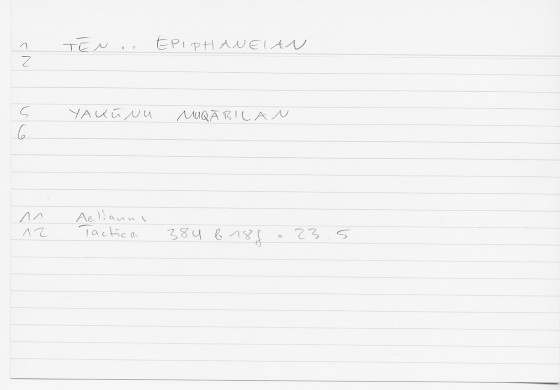 1 TĒN .. EPIPHANEIAN
2
5 YAKŪNU MUQĀBILAN
6
11 Aelianus
12 Tactica 384 b 18f = 23 5